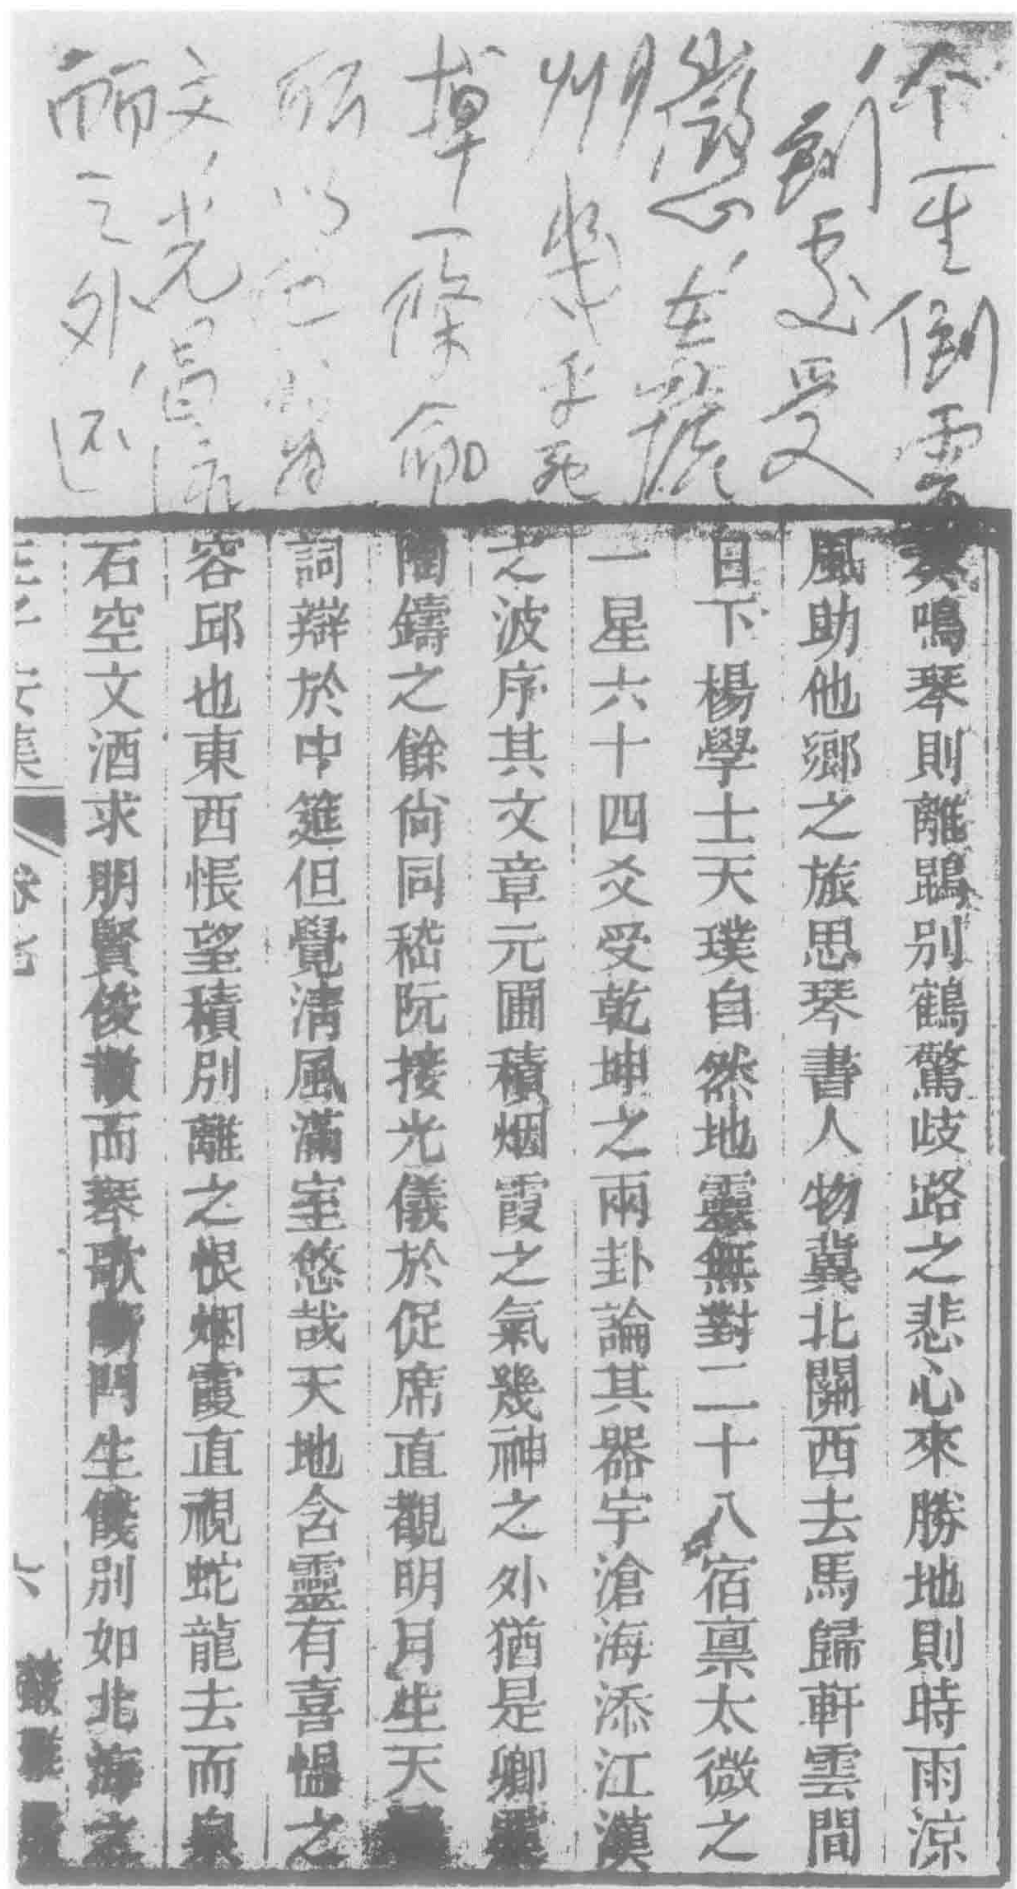 个一生倒霉
到處受
懲,在虢
州幾乎死
掉一條命
所以他的为
文,光昌流
麗之外,还
爽鳴琴則離鵾别鶴驚歧路之悲心來勝地則時雨涼
風助他鄉之旅思琴書人物冀北關西去馬歸軒雲間
日下楊學士天璞自然地靈無對二十八宿禀太微之
一星六十四爻受乾坤之兩卦論其器宇滄海添江漢
之波序其文章元圃積烟霞之氣幾神之外猶是卿雲
陶鑄之餘尙同嵇阮接光儀於促席直觀明月生天
詞辯於中筵但覺淸風滿室悠哉天地含靈有喜慍之
容邱也東西悵望積別離之恨烟霞直視蛇龍去而泉
石空文酒求朋賢俊散而琴歌斷門生餞別如北海之
王子安集 卷七 六